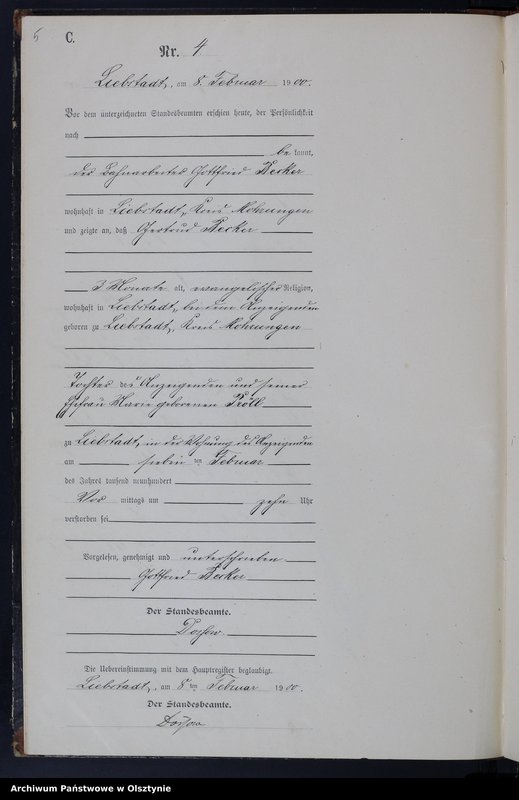 5
C.
Nr. 4
Liebstadt, am 8. Februar 1900.
Vor dem unterzeichneten Standesbeamten erschien heute, der Persönlichkeit
nach
be kannt,
der Bahnarbeiter Gottfried Becker
wohnhaft in Liebstadt, Kreis Mohrungen
und zeigte an, daß Gertrud Becker
3 Monate alt, evangelischer Religion,
wohnhaft in Liebstadt, bei dem Anzeigenden
geboren zu Liebstadt, Kreis Mohrungen
Tochter des Anzeigenden und seiner
Ehefrau Marie geborenen Pröll
zu Liebstadt, in der Wohnung des Anzeigenden
am sieben ten Februar
des Jahres tausend neunhundert
Vor mittags um zehn Uhr
verstorben sei.
Vorgelesen, genehmigt und unterschrieben
Gottfried Becker
Der Standesbeamte.
Die Uebereinstimmung mit dem Hauptregister beglaubigt.
Liebstadt, am 8 ten Februar 1900.
Der Standesbeamte.
Archiwum Państwowe w Olsztynie